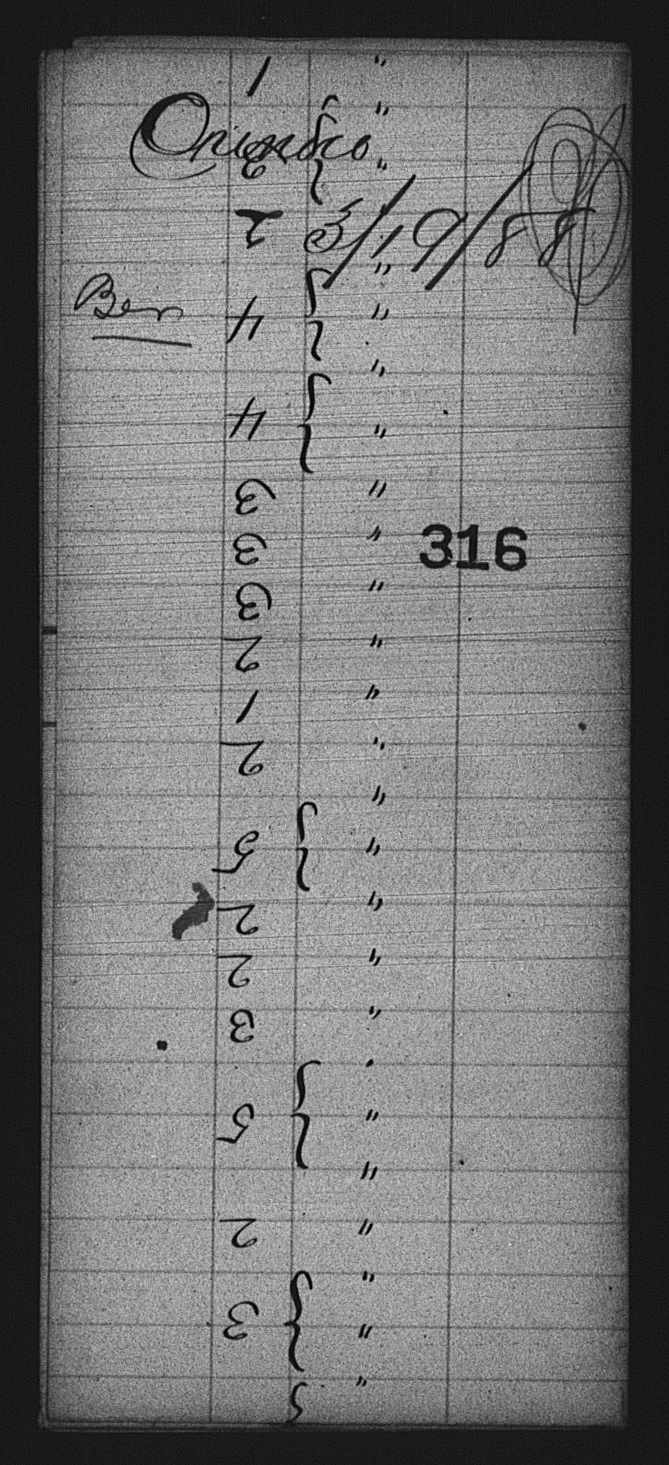 1 "
"
"
3/19/88
2 "
"
Ben
4 { "
"
4 { "
3 "
3 " 316
3 "
2 "
1 "
2 "
"
5 { "
2 "
2 "
3 "
"
5 { "
"
2 "
"
3 { "
"